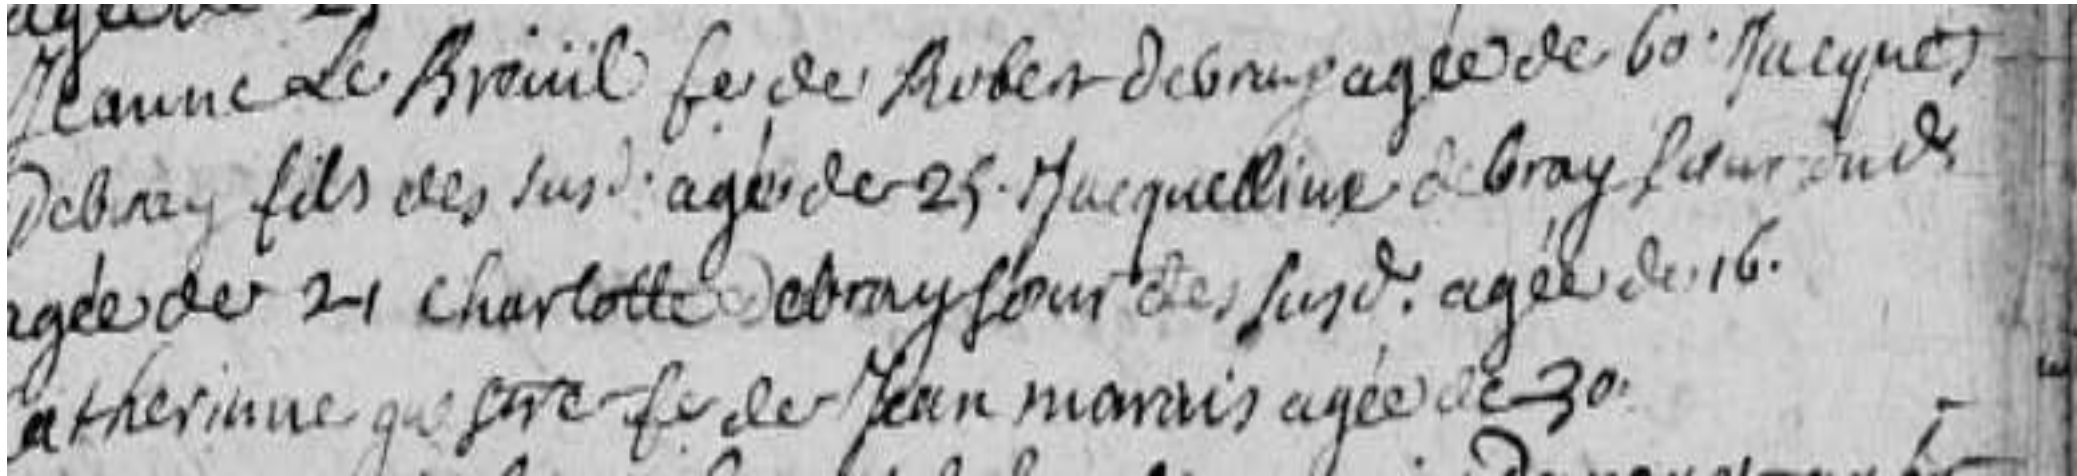 agée de 25
Jeanne Le Broüil fe de Robert Debray agée de 60. Jacques
Debray fils des susd. agé de 25. Jacquelline debray sœur dud.
agée de 21 charlotte Debray sœur des susd. agée de 16.
Catherinne fe de Jean marais agée de 30.